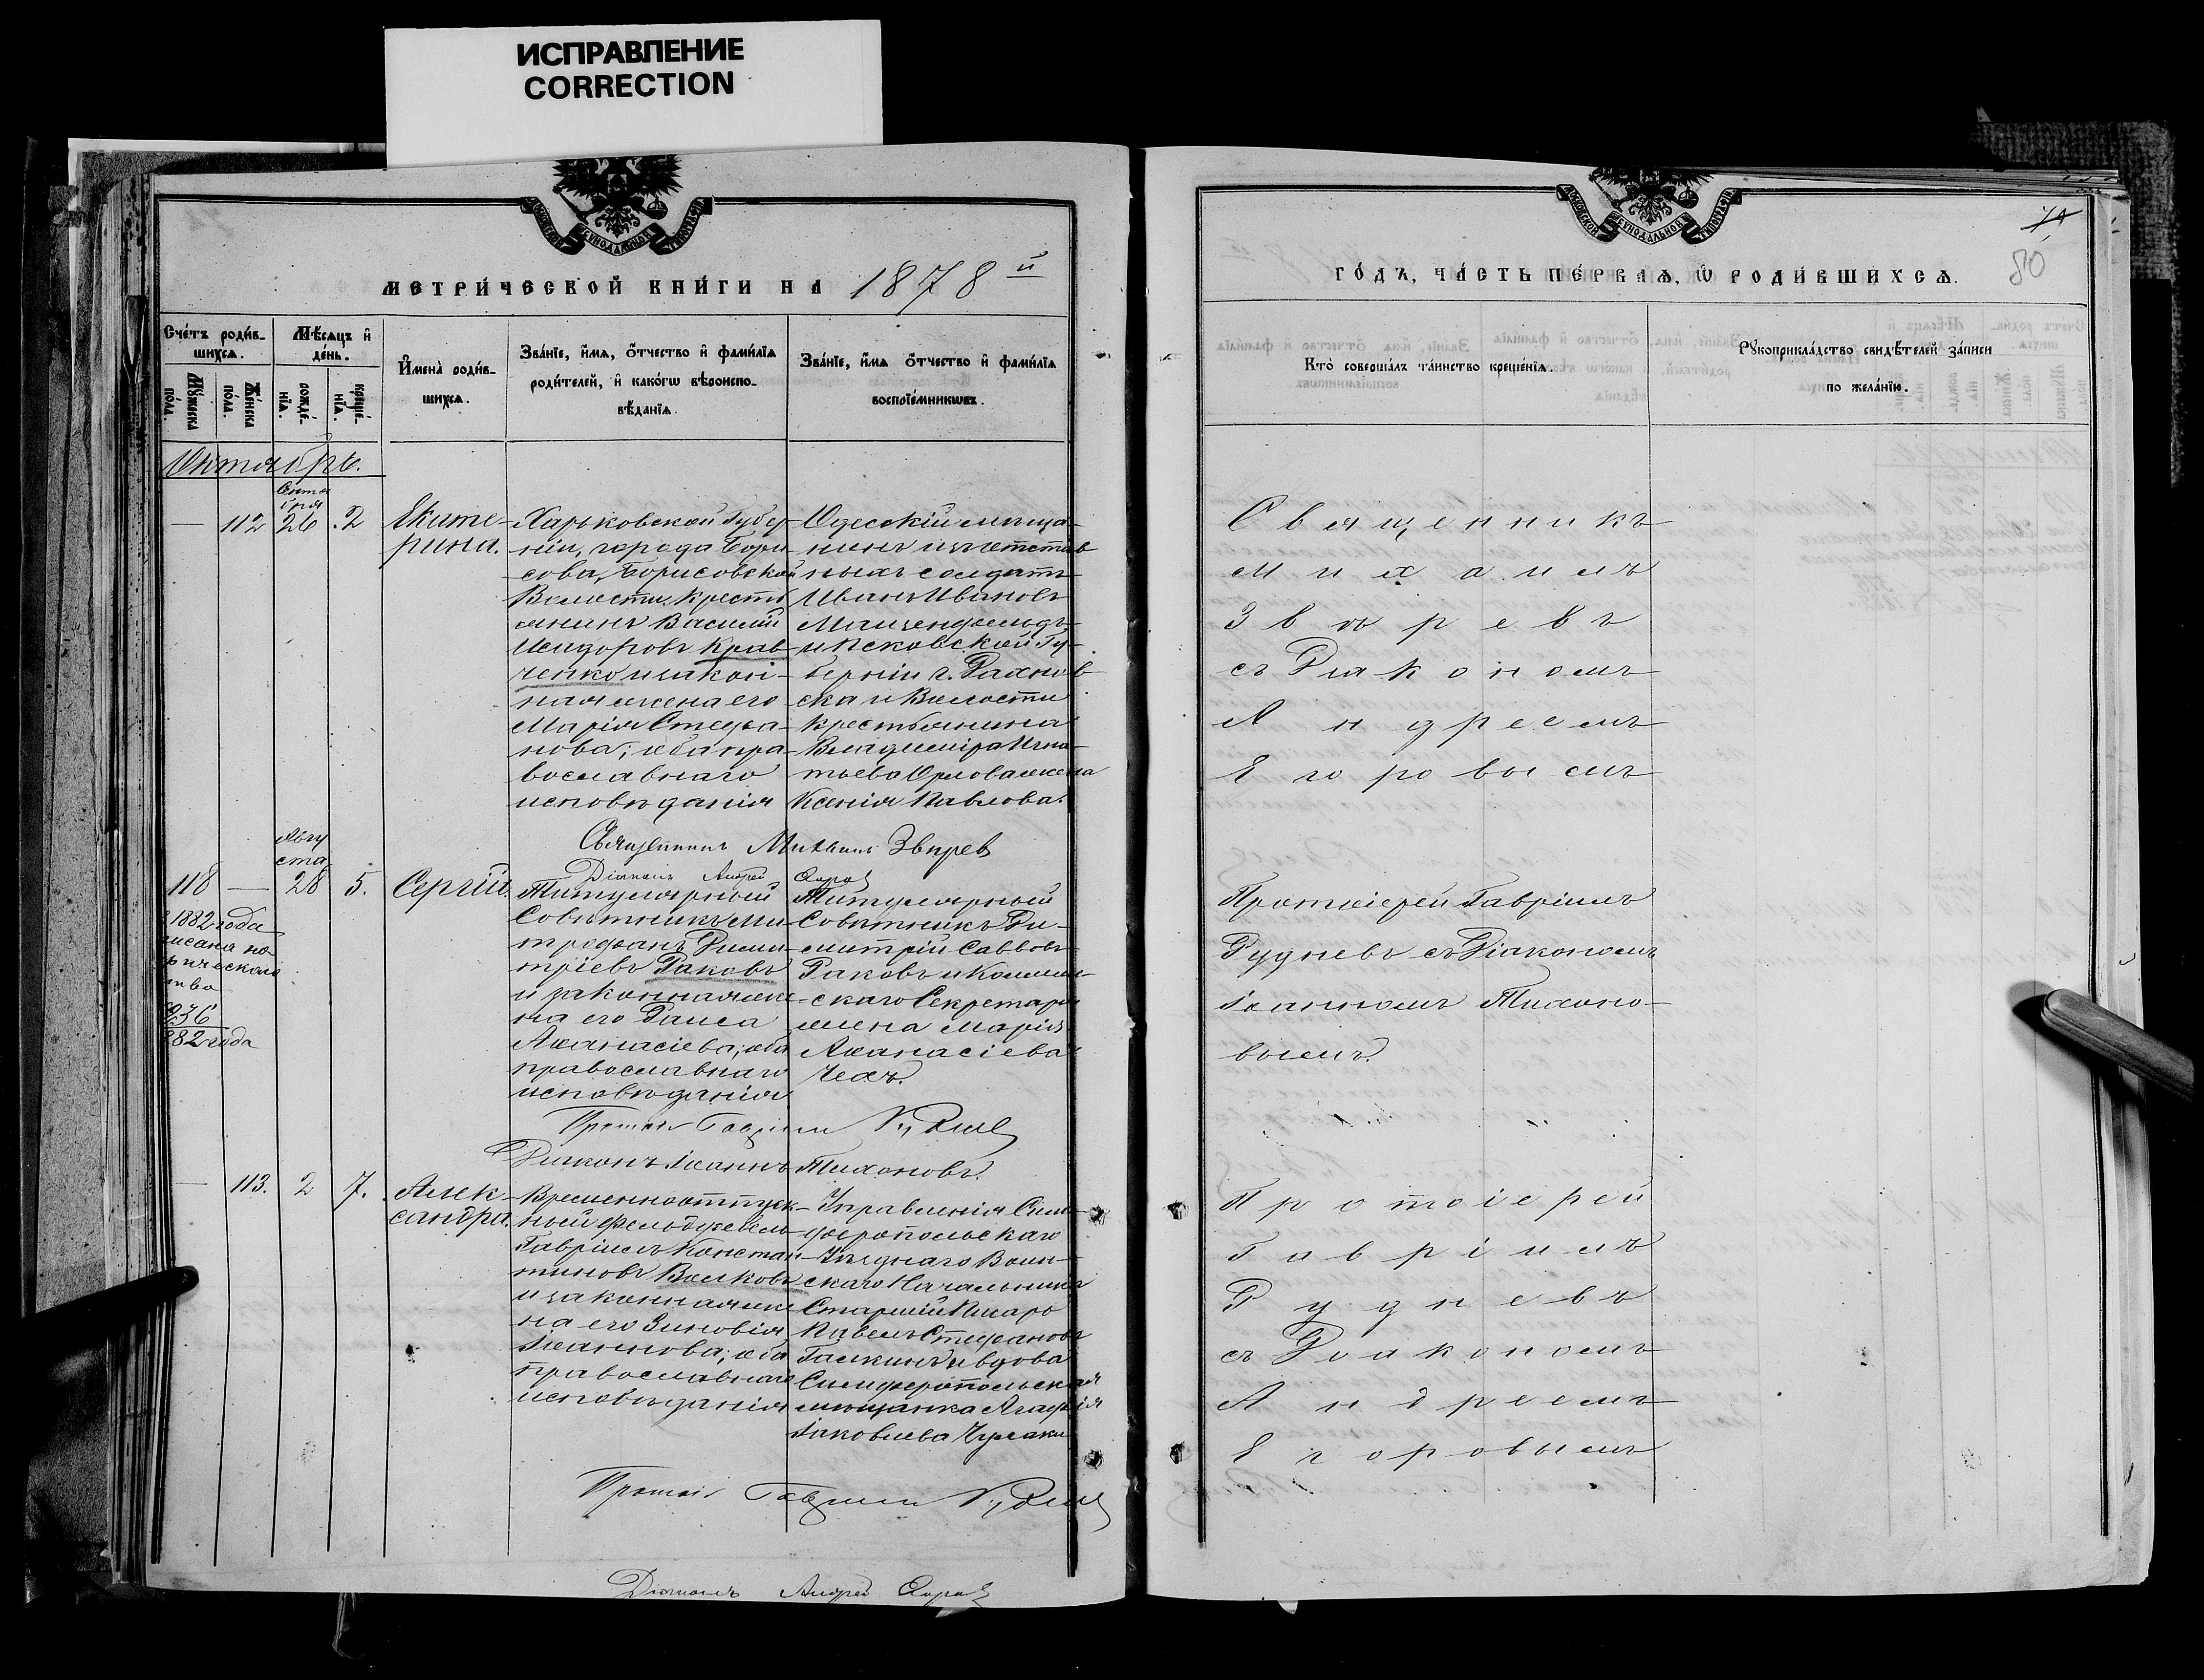 ИСПРАВЛЕНИЕ
CORRECTION
МОСКОВСКОЙ СѴНОДАЛЬНОЙ ТИПОГРАФІИ
МЕТРИ́ЧЕСКОЙ КНИ́ГИ НА 1878й
Сче́тъ роди́в-
шихсѧ.
Мѣ́сѧцъ и҆
де́нь.
И҆мена̀ роди́в-
шихсѧ.
Зва́нїе, и҆́мѧ, ѻ҆́тчество и҆ фами́лїѧ
роди́телей, и҆ како́гѡ вѣроиспо-
вѣ́данїѧ
Зва́нїе, и҆́мѧ ѻ҆́тчество и҆ фами́лїѧ
воспрїе́мникѡвъ.
Мꙋ́жеска
по́ла.
Же́нска
по́ла.
рожде́-
нїѧ.
креще́-
нїѧ.
Октябрь.
Сентя
бря
— 112 26 2 Екате-
рина.
Харьковской Губер-
ніи, города Бори-
сова, Борисовской
Волости, кресть
янинъ Василій
Исидоровъ Крав-
ченко и закон-
ная жена его
Марія Стефа-
нова; оба пра-
вославнаго
исповѣданія
Одесскій мѣща-
нинъ изъ отстав
ныхъ солдатъ
Иванъ Ивановъ
и Псковской Гу-
берніи г.
Волости
крестьянина
Владиміра Игна-
тьева Орлова жена
Ксенія Павлова.
Священникъ Михаилъ Звѣревъ
Діаконъ Андрей
Авгу
ста
118 — 28 5. Сергій.
1882 года
936
882 года
Титулярный
Совѣтникъ Ми-
трофанъ Дими-
тріевъ Раковъ
и законная же-
на его Раиса
Аѳанасіева; оба
православнаго
исповѣданія
Титулярный
Совѣтникъ Ди-
митрій Саввовъ
Раковъ и Коллеж-
скаго Секретаря
жена Марія
Аѳанасіева
Чехъ.
Протоіе Гавріилъ Рудневъ
Діаконъ Іоаннъ Тихоновъ.
— 113. 2 7. Алек-
сандра.
Временноотпуск-
ной фельдфебель
Гавріилъ Констан-
тиновъ Волковъ
и законная же-
на его Зиновія
Іоаннова; оба
православнаго
исповѣданія
Управленія Сим-
феропольскаго
Уѣзднаго Воин-
скаго Начальника
Старшій Писарь
Павелъ Стефановъ
Галкинъ и вдова
Симферопольская
мѣщанка Агафія
Іаковлева
Протоіе Гавріилъ Рудневъ
Діаконъ Андрей
74
80
ГО́ДЪ, ЧА́СТЬ ПЕ́РВАѦ, Ѡ҆ РОДИ́ВШИХСѦ.
Кто̀ соверша́лъ та́инство креще́нїѧ.
Рꙋкоприкла́дство свидѣ́телей за́писи
по жела́нїю.
Священникъ
Михаилъ
Звѣревъ
съ Діакономъ
Андреемъ
Егоровымъ
Протоіерей Гавріилъ
Рудневъ съ Діакономъ
Іоанномъ Тихоно-
вымъ.
Протоіерей
Гавріилъ
Рудневъ
съ Діакономъ
Андреемъ
Егоровымъ